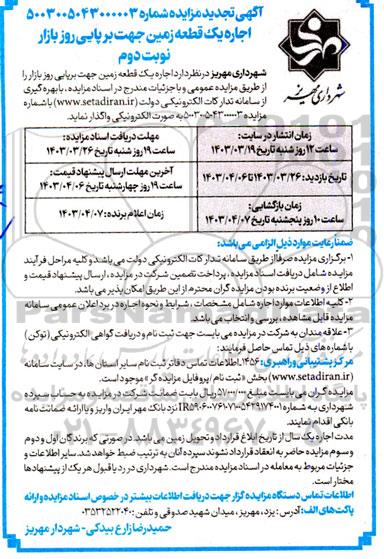 آگهی تجدید مزایده شماره ۵۰۰۳۰۰۵۰۴۳۰۰۰۰۰۳
اجاره یک قطعه زمین جهت برپایی روز بازار
نوبت دوم
شهرداری مهریز
شهرداری مهریز در نظر دارد اجاره یک قطعه زمین جهت برپایی روز بازار را
از طریق مزایده عمومی و با جزئیات مندرج در اسناد مزایده، با بهره گیری
از سامانه تدارکات الکترونیکی دولت (www.setadiran.ir) با شماره
مزایده ۵۰۰۳۰۰۵۰۴۳۰۰۰۰۰۳ به صورت الکترونیکی واگذار نماید.
زمان انتشار در سایت:
ساعت ۱۲ روز شنبه تاریخ ۱۴۰۳/۰۳/۱۹
مهلت دریافت اسناد مزایده:
ساعت ۱۹ روز شنبه تاریخ ۱۴۰۳/۰۳/۲۶
تاریخ بازدید: ۱۴۰۳/۰۳/۲۶ تا ۱۴۰۳/۰۴/۰۶
آخرین مهلت ارسال پیشنهاد قیمت:
ساعت ۱۹ روز چهارشنبه تاریخ ۱۴۰۳/۰۴/۰۶
زمان بازگشایی:
ساعت ۱۰ روز پنجشنبه تاریخ ۱۴۰۳/۰۴/۰۷
زمان اعلام برنده: ۱۴۰۳/۰۴/۰۷
ضمنا رعایت موارد ذیل الزامی می باشد:
۱- برگزاری مزایده صرفا از طریق سامانه تدارکات الکترونیکی دولت می باشد و کلیه مراحل فرآیند
مزایده شامل دریافت اسناد مزایده، پرداخت تضمین شرکت در مزایده، ارسال پیشنهاد قیمت و
اطلاع از وضعیت برنده بودن مزایده گران محترم از این طریق امکان پذیر می باشد.
۲- کلیه اطلاعات موارد اجاره شامل مشخصات، شرایط و نحوه اجاره در برد اعلان عمومی سامانه
مزایده قابل مشاهده، بررسی و انتخاب می باشد.
۳- علاقه مندان به شرکت در مزایده می بایست جهت ثبت نام و دریافت گواهی الکترونیکی (توکن)
با شماره های ذیل تماس حاصل فرمایند:
مرکز پشتیبانی و راهبری: ۱۴۵۶، اطلاعات تماس دفاتر ثبت نام سایر استان ها، در سایت سامانه
(www.setadiran.ir) بخش «ثبت نام/پروفایل مزایده گر» موجود است.
مزایده گران می بایست مبلغ ۵۷/۰۰۰/۰۰۰ ریال بابت ضمانت شرکت در مزایده به حساب سپرده
نزد بانک مهر ایران واریز و یا ارائه ضمانت نامه
بانکی اقدام نمایند.
مدت اجاره یک سال از تاریخ ابلاغ قرارداد و تحویل زمین می باشد. در صورتی که برندگان اول و دوم
و سوم مزایده حاضر به انعقاد قرارداد نشوند سپرده آنان به ترتیب ضبط خواهد شد. سایر اطلاعات و
جزئیات مربوط به معامله در اسناد مزایده مندرج است. شهرداری در رد یا قبول هر یک از پیشنهادها
مختار است.
اطلاعات تماس دستگاه مزایده گزار جهت دریافت اطلاعات بیشتر در خصوص اسناد مزایده و ارائه
پاکت های الف: آدرس: یزد، مهریز، میدان شهید صدوقی و تلفن: ۰۳۵۳۲۵۲۲۰۴۰
حمیدرضا زارع بیدکی - شهردار مهریز